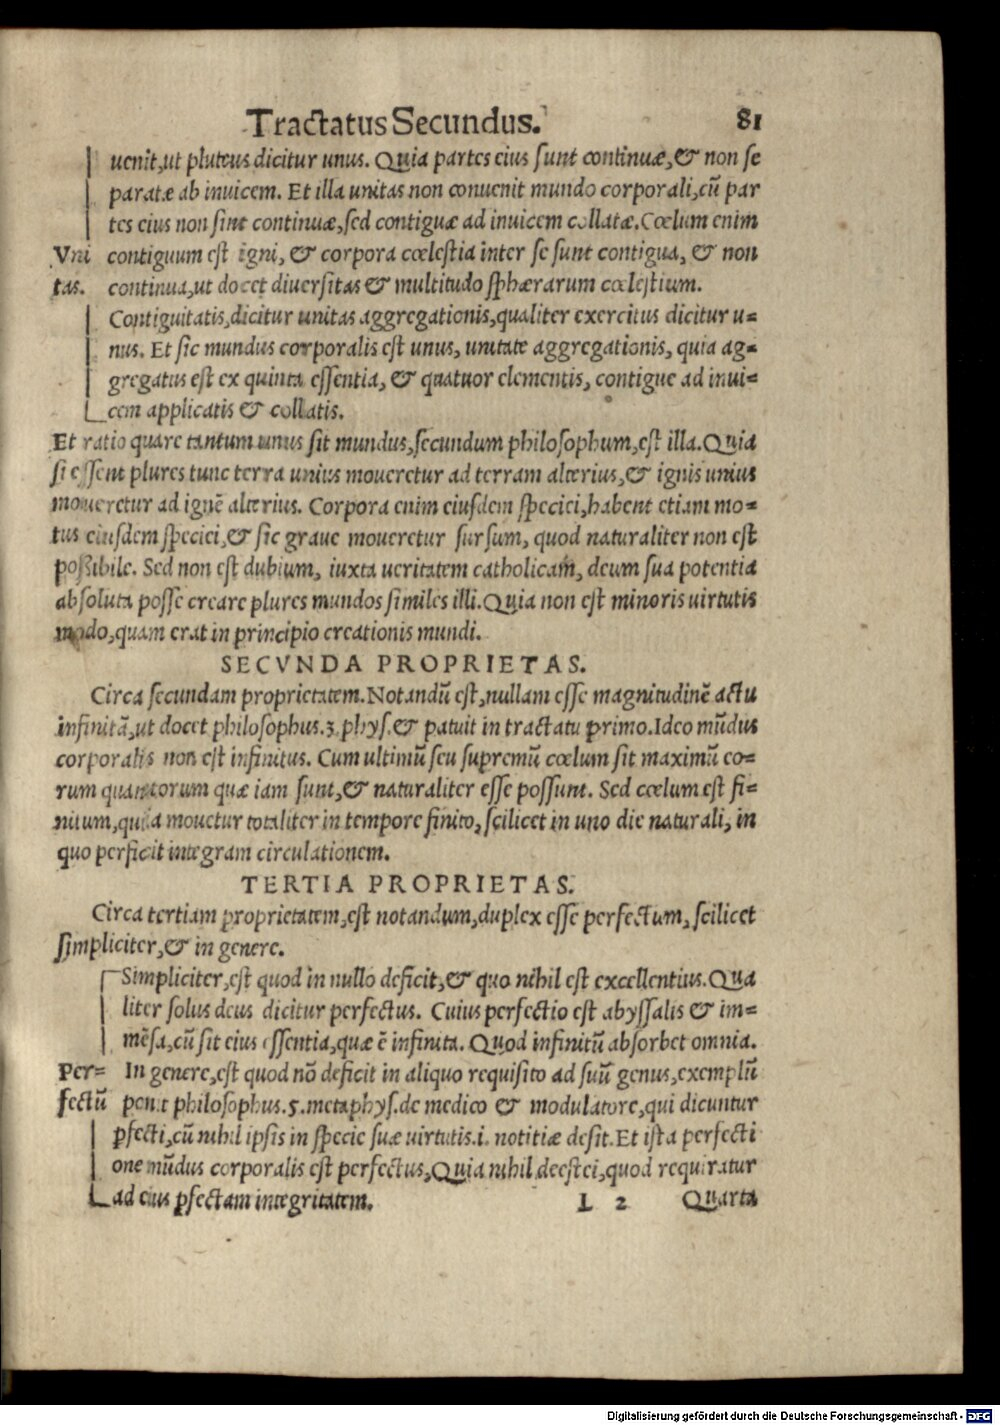 Tractatus Secundus. 81
uenit, ut pluteus dicitur unus. Quia partes eius sunt continuæ, & non se
paratæ ab inuicem. Et illa unitas non conuenit mundo corporali, cũ par
tes eius non sint continuæ, sed contiguæ ad inuicem collatæ. Cœlum enim
Vni contiguum est igni, & corpora cœlestia inter se sunt contigua, & non
tas. continua, ut docet diuersitas & multitudo sphærarum cœlestium.
Contiguitatis, dicitur unitas aggregationis, qualiter exercitus dicitur u=
nus. Et sic mundus corporalis est unus, unitate aggregationis, quia ag=
gregatus est ex quinta essentia, & quatuor elementis, contigue ad inui=
cem applicatis & collatis.
Et ratio quare tantum unus sit mundus, secundum philosophum, est illa. Quia
si essent plures tunc terra unius moueretur ad terram alterius, & ignis unius
moueretur ad ignẽ alterius. Corpora enim eiusdem speciei, habent etiam mo=
tus eiusdem speciei, & sic graue moueretur sursum, quod naturaliter non est
possibile. Sed non est dubium, iuxta ueritatem catholicam, deum sua potentia
absoluta posse creare plures mundos similes illi. Quia non est minoris uirtutis
modo, quam erat in principio creationis mundi.
SECVNDA PROPRIETAS.
Circa secundam proprietatem. Notandũ est, nullam esse magnitudinẽ actu
infinitã, ut docet philosophus. 3. phys. & patuit in tractatu primo. Ideo mũdus
corporalis non est infinitus. Cum ultimũ seu supremũ cœlum sit maximũ eo=
rum quantorum quæ iam sunt, & naturaliter esse possunt. Sed cœlum est fi=
nitum, quia mouetur totaliter in tempore finito, scilicet in uno die naturali, in
quo perficit integram circulationem.
TERTIA PROPRIETAS.
Circa tertiam proprietatem, est notandum, duplex esse perfectum, scilicet
simpliciter, & in genere.
Simpliciter, est quod in nullo deficit, & quo nihil est excellentius. Qua
liter solus deus dicitur perfectus. Cuius perfectio est abyssalis & im=
mẽsa, cũ sit eius essentia, quæ ẽ infinita. Quod infinitũ absorbet omnia.
Per= In genere, est quod nõ deficit in aliquo requisito ad suũ genus, exemplũ
fectũ ponit philosophus. 5. metaphys. de medico & modulatore, qui dicuntur
ꝑfecti, cũ nihil ipsis in specie suæ uirtutis .i. notitiæ desit. Et ista perfecti
one mũdus corporalis est perfectus, Quia nihil deest ei, quod requiratur
ad eius ꝑfectam integritatem. L 2 Quarta
Digitalisierung gefördert durch die Deutsche Forschungsgemeinschaft - DFG